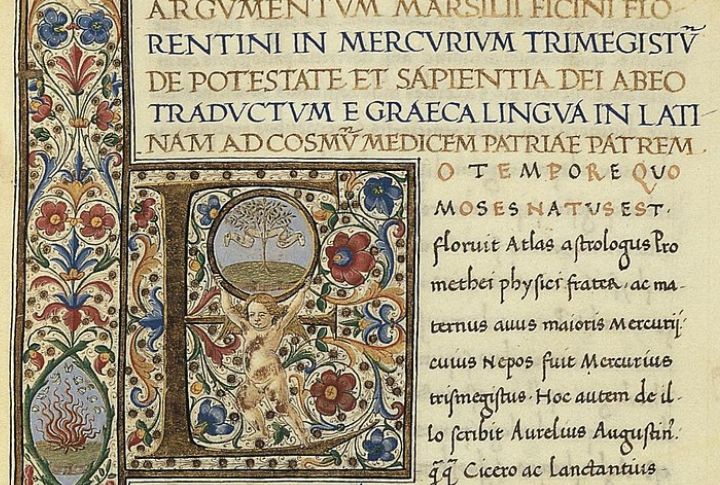 ARGVMENTVM MARSILII FICINI FLO
RENTINI IN MERCVRIVM TRIMEGISTV̄
DE POTESTATE ET SAPIENTIA DEI AB EO
TRADVCTVM E GRAECA LINGVA IN LATI
NAM AD COSMV̄ MEDICEM PATRIAE PATREM
E
O TEMPORE QVO
MOSES NATVS EST·
floruit Atlas astrologus Pro
methei physici frater· ac ma-
ternus auus maioris Mercurij·
cuius Nepos fuit Mercurius
trismegistus· Hoc autem de il-
lo scribit Aurelius Augustin᷒·
q̄q̄ Cicero ac Lanctantius